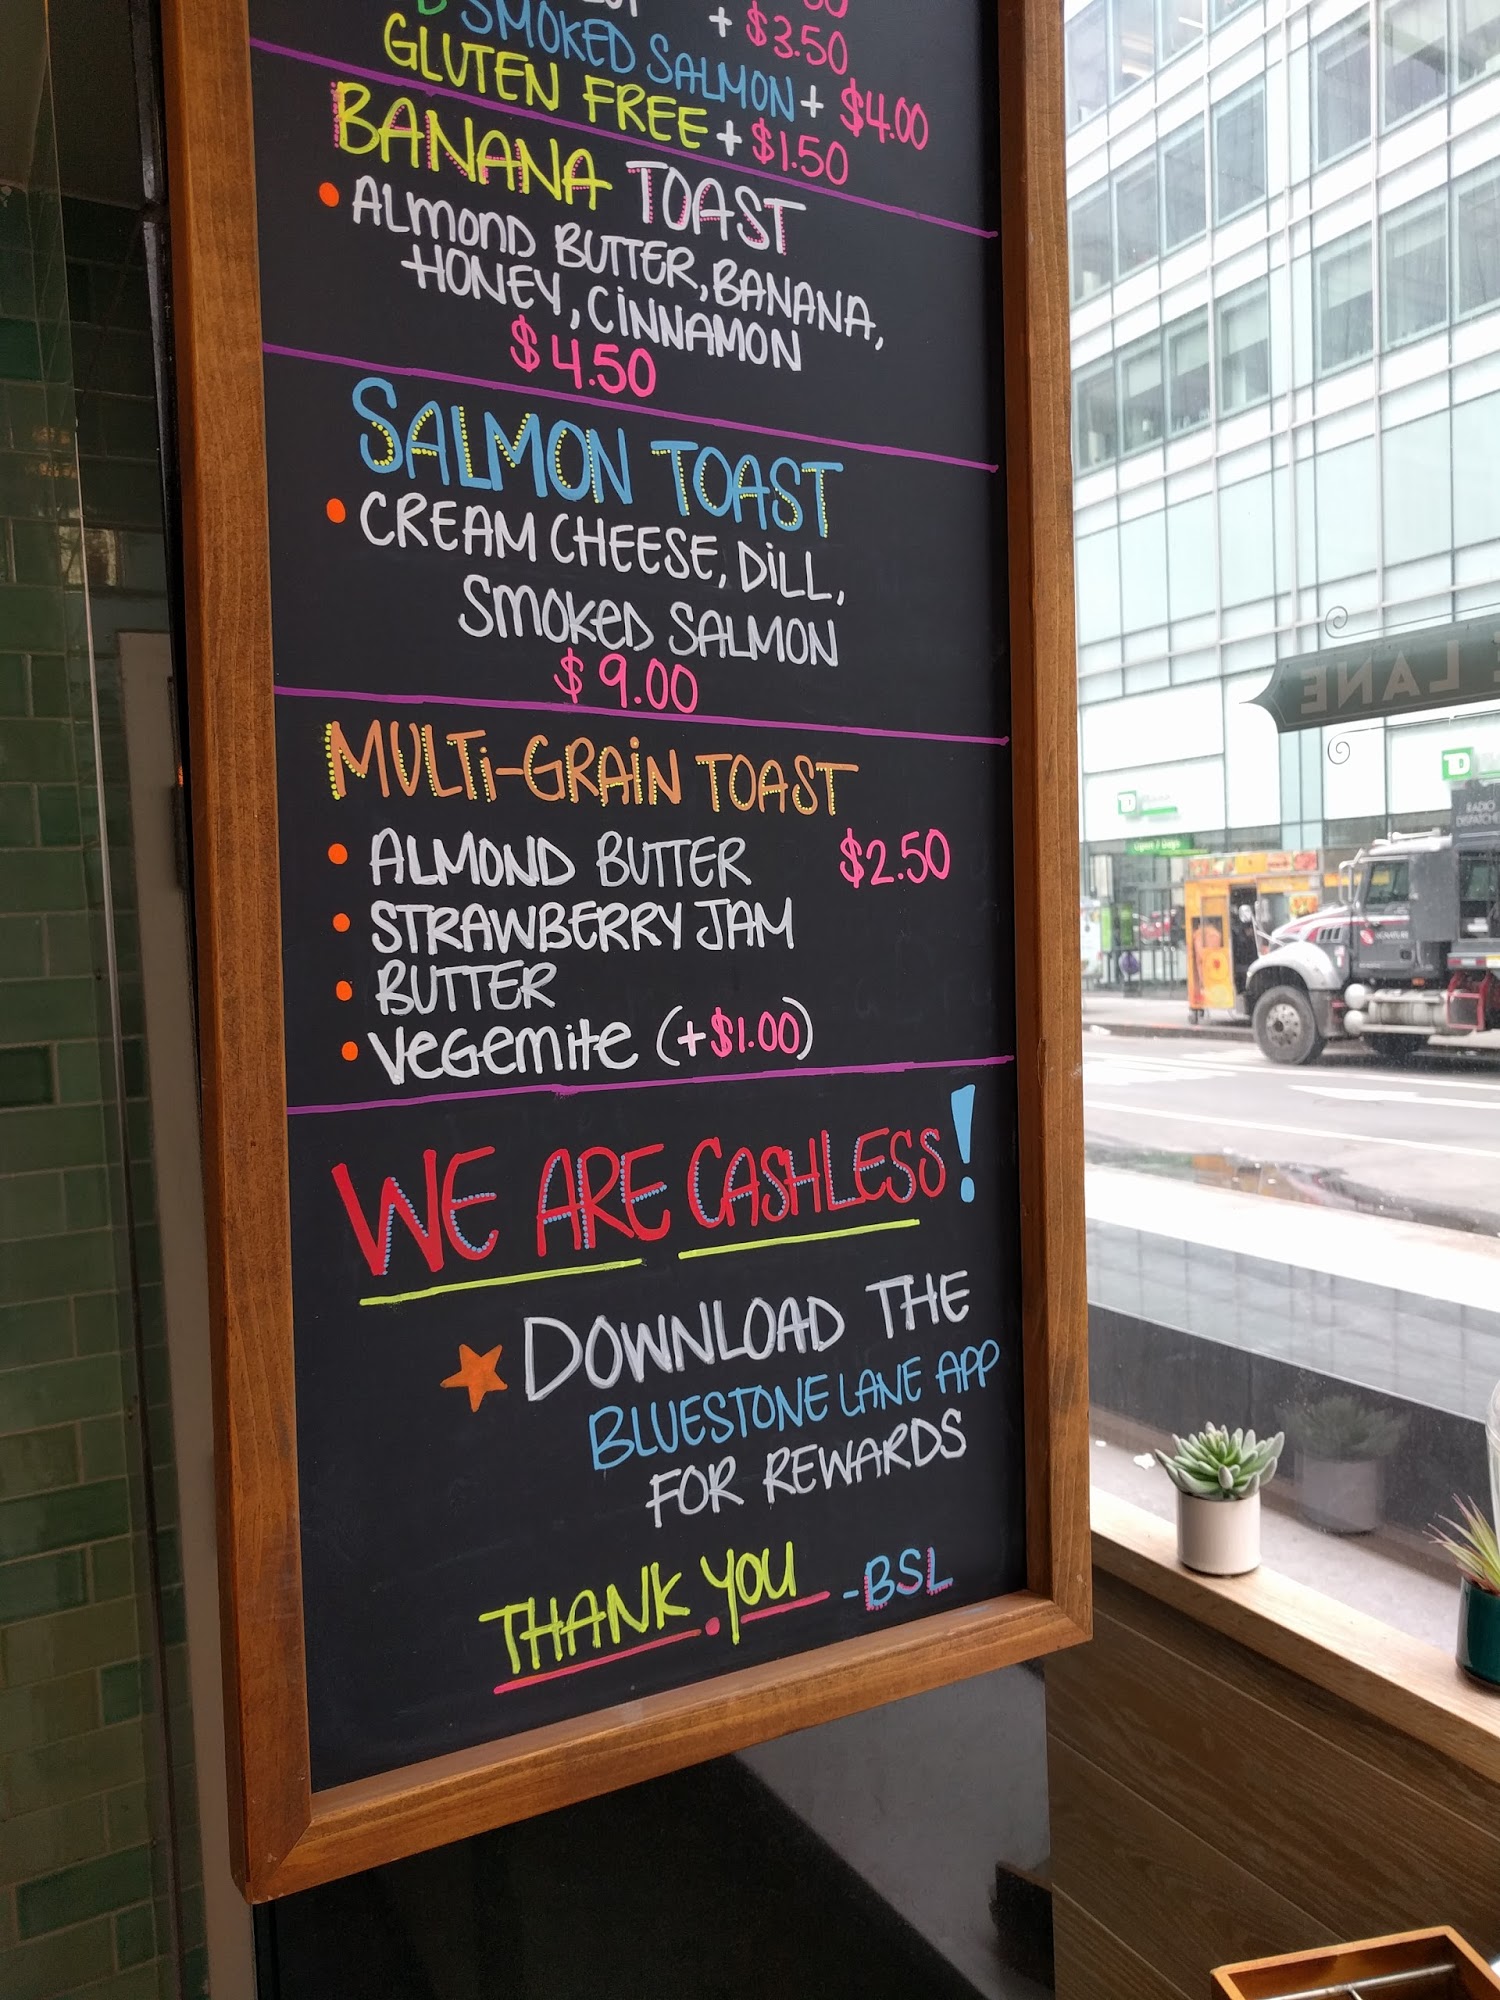 + $3.50
SMOKED SALMON + $4.00
GLUTEN FREE + $1.50
BANANA TOAST
• ALMOND BUTTER, BANANA,
HONEY, CINNAMON
$4.50
SALMON TOAST
• CREAM CHEESE, DILL,
SMOKED SALMON
$9.00
MULTI-GRAIN TOAST
• ALMOND BUTTER $2.50
• STRAWBERRY JAM
• BUTTER
• VEGEMITE (+$1.00)
WE ARE CASHLESS!
DOWNLOAD THE
BLUESTONE LANE APP
FOR REWARDS
THANK YOU -BSL
LANE
TD
TD
RADIO